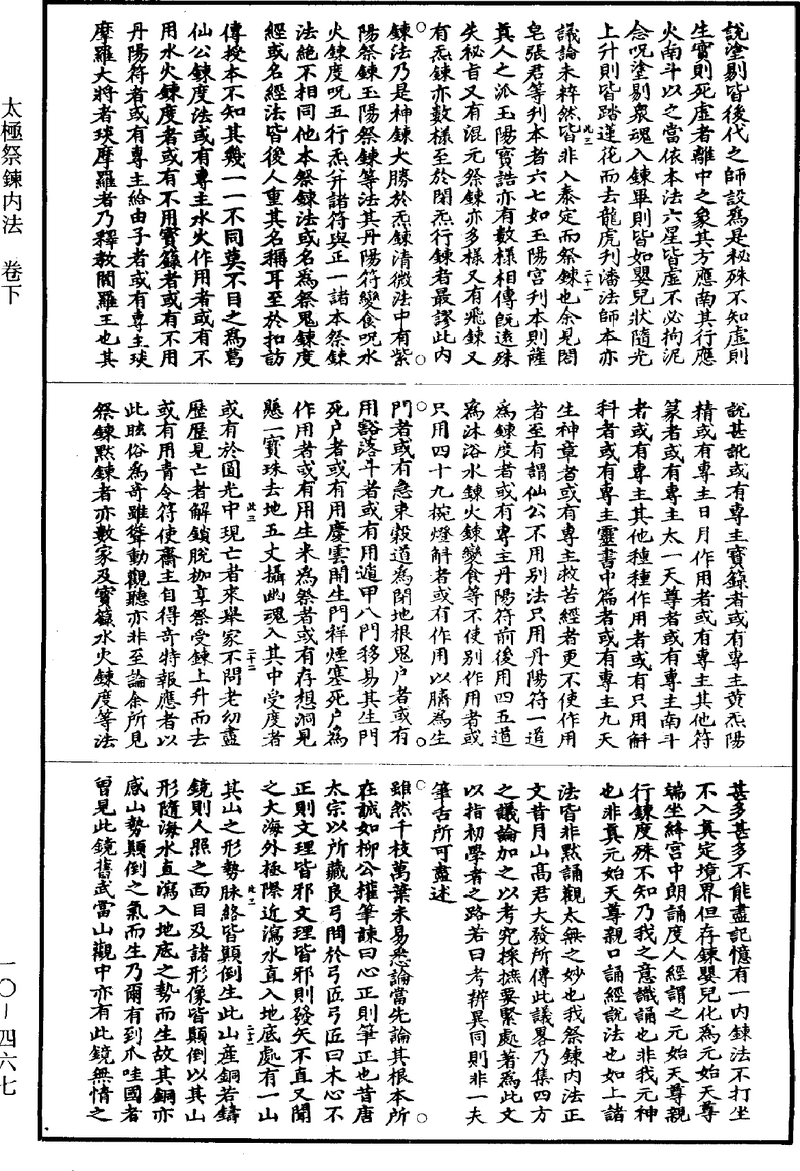 說塗剔皆後代之師設為是秘殊不知虛則
生實則死虛者離中之象其方應南其行應
火南斗以之當依本法六星皆虛不必拘泥
念呪塗剔衆魂入鍊畢則皆如嬰兒狀隨光
上升則皆踏蓮花而去龍虎刋潘法師本亦
議論未粹然皆非入泰定而祭鍊也余見閤
皂張君等刋本者六七如玉陽宫刋本則薩
真人之派玉陽寶誥亦有數樣相傳旣遠殊
失秘旨又有混元祭鍊亦多樣又有飛鍊又
有炁鍊亦數樣至於閉炁行鍊者最謬此内
鍊法乃是神鍊大勝於炁鍊清微法中有紫
陽祭鍊玉陽祭鍊等法其丹陽符變食呪水
火鍊度呪五行炁并諸符與正一諸本祭鍊
法絶不相同他本祭鍊法或名為祭鬼鍊度
經或名經法皆後人重其名稱耳至於扣訪
傳授本不知其幾一一不同莫不目之為葛
仙公鍊度法或有專主水火作用者或有不
用水火鍊度者或有不用寶籙者或有不用
丹陽符者或有專主給由子者或有專主琰
摩羅大將者琰摩羅者乃釋教閻羅王也其
說甚訛或有專主寶籙者或有專主黄炁陽
精或有專主日月作用者或有專主其他符
篆者或有專主太一天尊者或有專主南斗
者或有專主其他種種作用者或有只用斛
科者或有專主靈書中篇者或有專主九天
生神章者或有專主救苦經者更不使作用
者至有謂仙公不用别法只用丹陽符一道
為鍊度者或有專主丹陽符前後用四五道
為沐浴水鍊火鍊變食等不使别作用者或
只用四十九椀燈斛者或有作用以臍為生
門者或有急束榖道為閉地根鬼户者或有
用豁落斗者或有用遁甲八門移易其生門
死户者或有用慶雲開生門祥煙塞死户為
作用者或有用生米為祭者或有存想洞見
懸一寶珠去地五丈攝幽魂入其中受度者
或有於圓光中現亡者來舉家不問老幼盡
歷歷見亡者解鎖脱枷享祭受鍊上升而去
或有用青令符使齋主自得奇特報應者以
此眩俗為奇雖聳動觀聽亦非至論余所見
祭鍊默鍊者亦數家及寶籙水火鍊度等法
甚多甚多不能盡記憶有一内鍊法不打坐
不入真定境界但存鍊嬰兒化為元始天尊
端坐絳宫中朗誦度人經謂之元始天尊親
行鍊度殊不知乃我之意識誦也非我元神
也非真元始天尊親口誦經說法也如上諸
法皆非默誦觀太無之妙也我祭鍊内法正
文昔月山髙君大發所傳此議畧乃集四方
之議論加之以考究採摭要緊處著為此文
以指初學者之路若曰考辨異同則非一夫
筆舌所可盡述
雖然千枝萬葉未易悉論當先論其根本所
在誠如柳公權筆諫曰心正則筆正也昔唐
太宗以所藏良弓問於弓匠弓匠曰木心不
正則文理皆邪文理皆邪則發矢不直又聞
之大海外極際近瀉水直入地底處有一山
其山之形勢脉絡皆顛倒生此山産銅若鑄
鏡則人照之面目及諸形像皆顛倒以其山
形隨海水直瀉入地底之勢而生故其銅亦
感山勢顛倒之氣而生乃爾有到爪哇國者
曾見此鏡舊武當山觀中亦有此鏡無情之
太極祭鍊内法　卷下
一〇－四六七